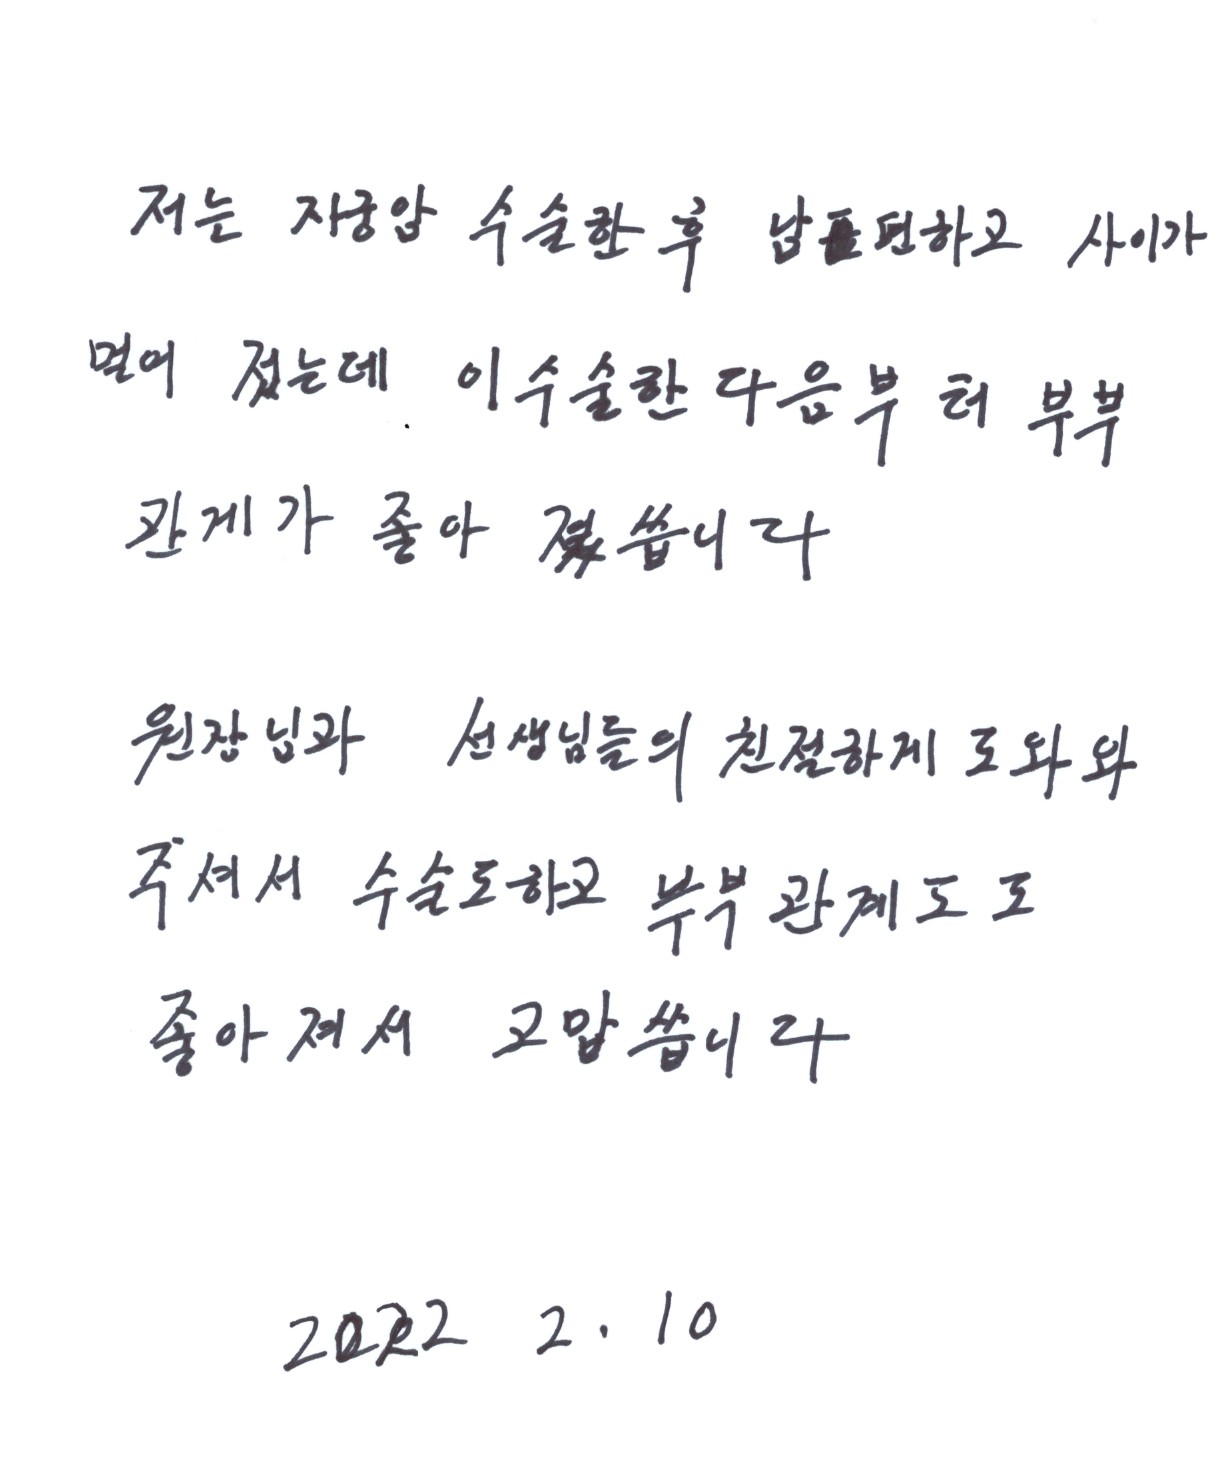 저는 자궁암 수술한 후 남편하고 사이가
멀어 졌는데 이수술한 다음부 터 부부
관게가 좋아 졌씁니다
원장님과 선생님들의 친절하게 도와 와
주셔서 수술도하고 부부 관계도 도
좋아져서 고맙씁니다
2022 2. 10